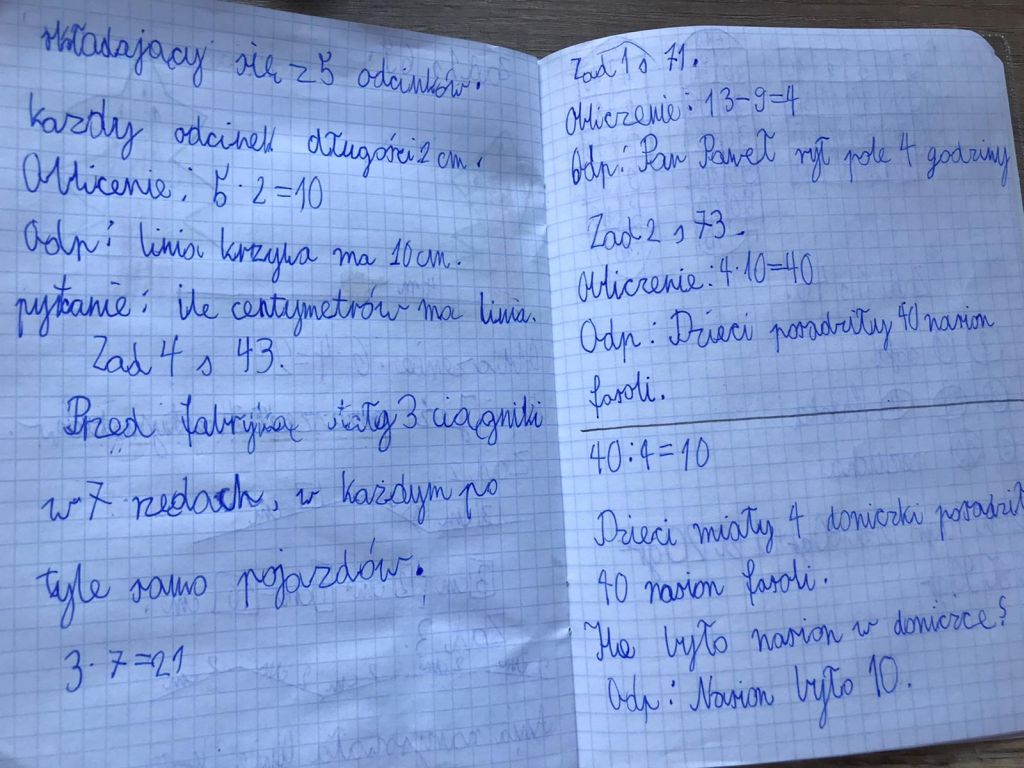 składający się z 5 odcinków.
każdy odcinek długości 2 cm.
Oblicenie: 5 · 2 = 10
Odp: linia krzywa ma 10 cm.
pytanie: ile centymetrów ma linia.
Zad 4 s 43.
Przed fabryką stały 3 ciągniki
w 7 rzedach, w każdym po
tyle samo pojazdów.
3 · 7 = 21
Zad 1 s 71.
Obliczenie: 13 - 9 = 4
Odp: Pan Paweł rył pole 4 godziny
Zad 2 s 73.
Obliczenie: 4 · 10 = 40
Odp: Dzieci posadziły 40 nasion
fasoli.
40 : 4 = 10
Dzieci miały 4 doniczki posadził
40 nasion fasoli.
Ile było nasion w doniczce?
Odp: Nasion było 10.